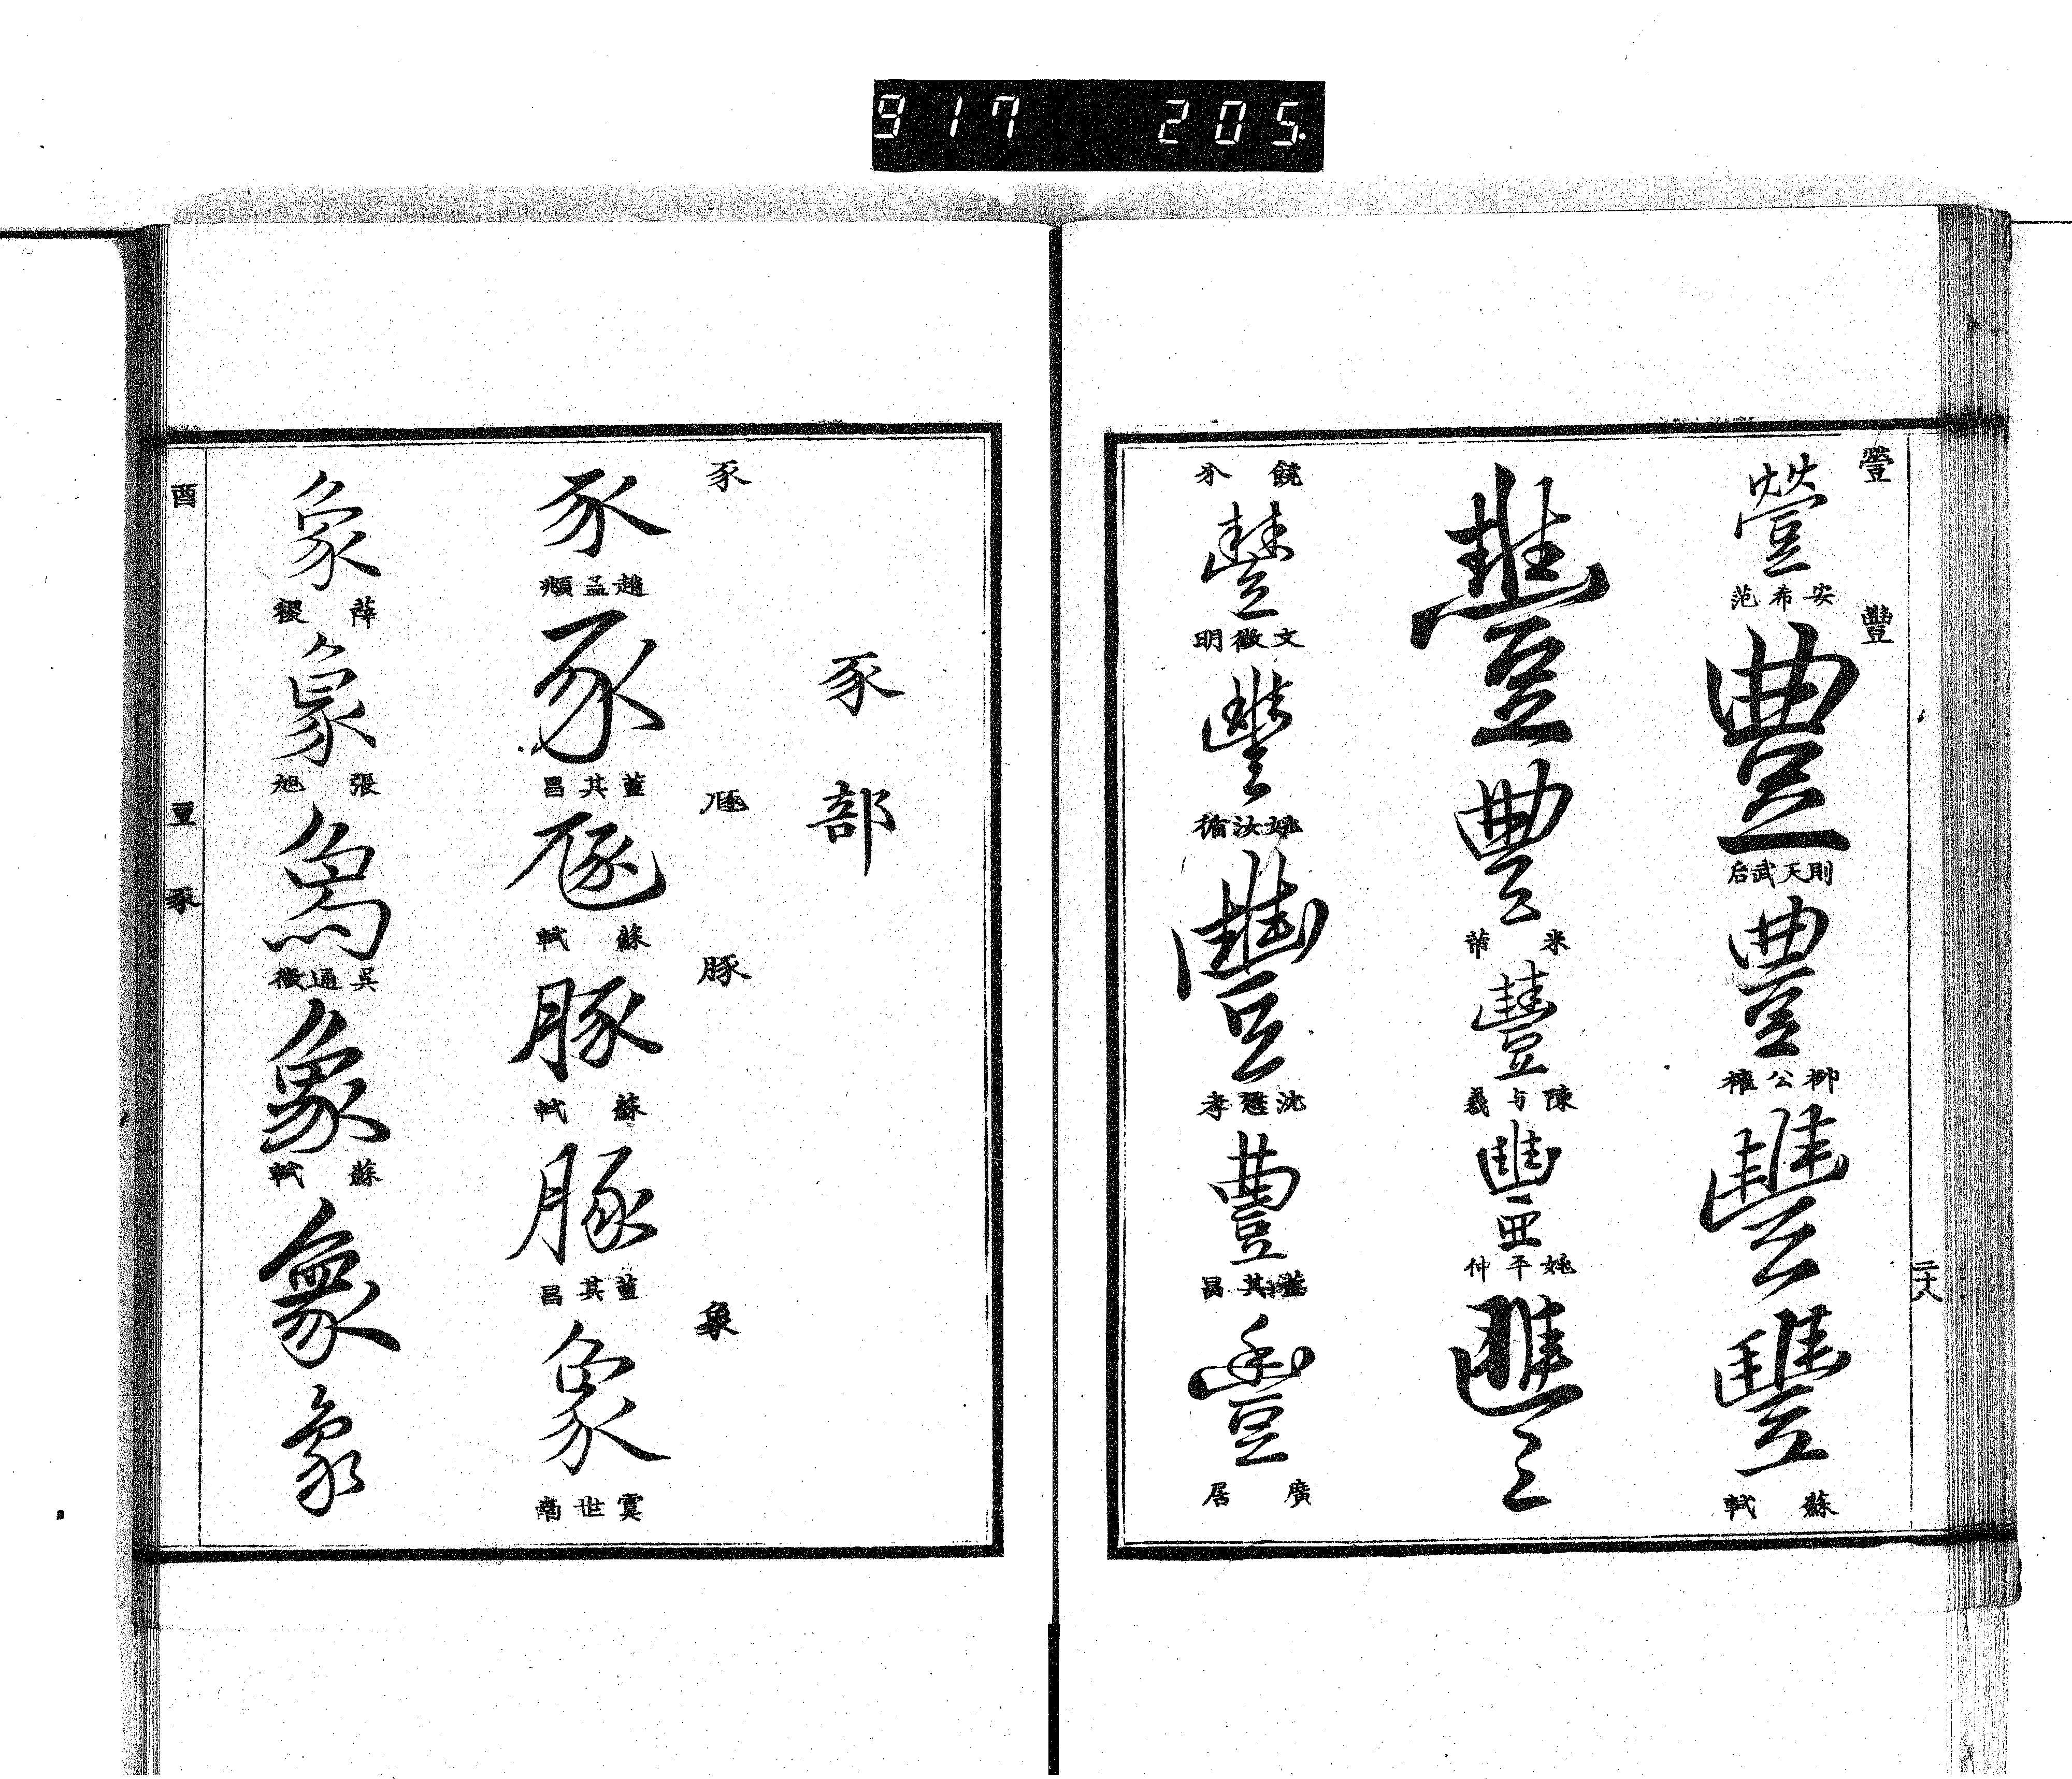 917 205
豋
豐
豋
安希范
豐
則天武后
豐
柳公權
豐
豐
蘇軾
豐
豐
米芾
豐
陳与義
豐
姚平仲
豐
饒介
豐
文徵明
豐
姚汝循
豐
沈應孝
豐
董其昌
豐
廣居
二十八
豕部
豕
豗
豚
象
豕
趙孟頫
豕
董其昌
豗
蘇軾
豚
蘇軾
豚
董其昌
象
虞世南
象
薛稷
象
張旭
象
吳通微
象
蘇軾
象
象
酉
豆
豕